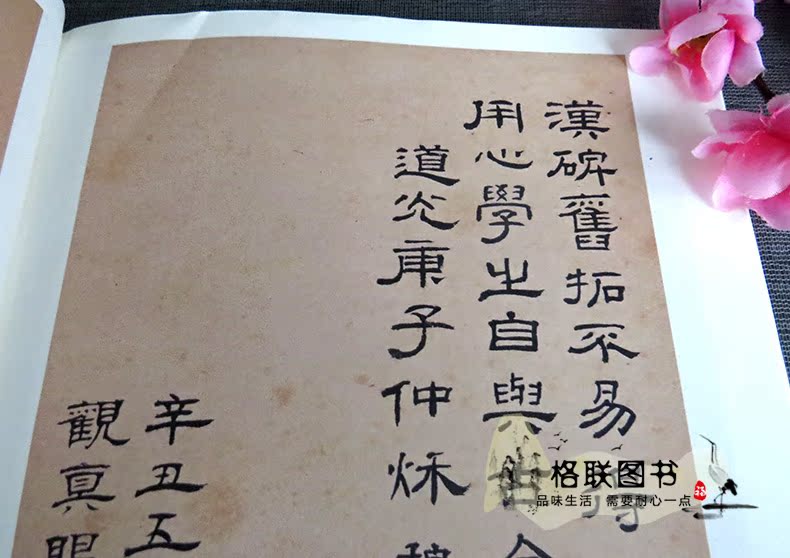 漢碑舊拓不易得
用心學之自與古合
道光庚子仲秌
辛丑五
觀真眼
格联图书
品味生活 需要耐心一点
福